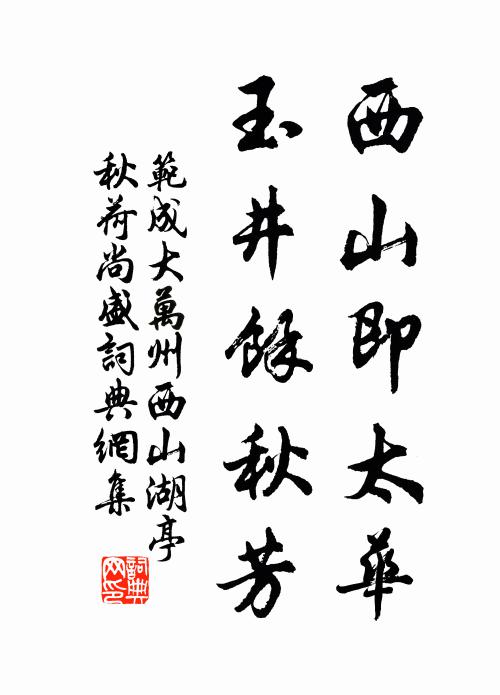 西山即太華
玉井餘秋芳
範成大萬州西山湖亭
秋荷尚盛詞典網集
詞典
网印